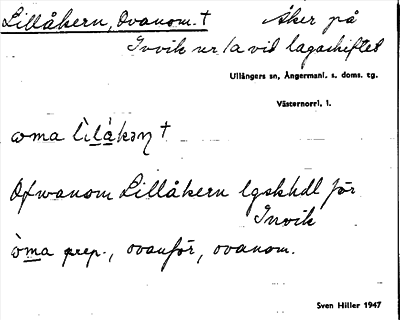 Lillåkern, Ovanom. † Åker på
Invik nr 1a vid lagaskiftet
Ullångers sn, Ångermanl. s. doms. tg.
Västernorrl. l.
ɷ̀ma lìlåkəɳ †
Ofwanom Lillåkern lgskhdl för
Invik
ɷ̀ma prep., ovanför, ovanom.
Sven Hiller 1947